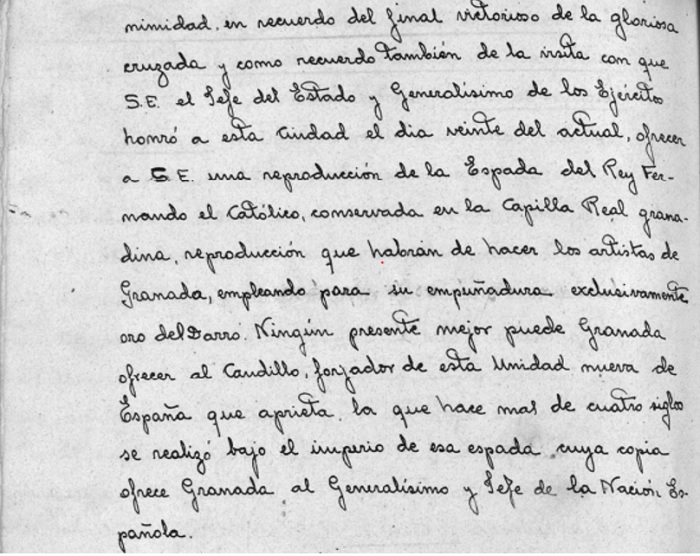 nimidad, en recuerdo del final victorioso de la gloriosa
cruzada y como recuerdo también de la visita con que
S.E. el Jefe del Estado y Generalísimo de los Ejércitos
honró a esta Ciudad el dia veinte del actual, ofrecer
a S.E. una reproducción de la Espada del Rey Fer-
nando el Católico, conservada en la Capilla Real grana-
dina, reproducción que habrán de hacer los artistas de
Granada, empleando para su empuñadura exclusivamente
oro del Darro. Ningún presente mejor puede Granada
ofrecer al Caudillo, forjador de esta Unidad nueva de
España que aprieta la que hace mas de cuatro siglos
se realizó bajo el imperio de esa espada cuya copia
ofrece Granada al Generalísimo y Jefe de la Nación Es-
pañola.